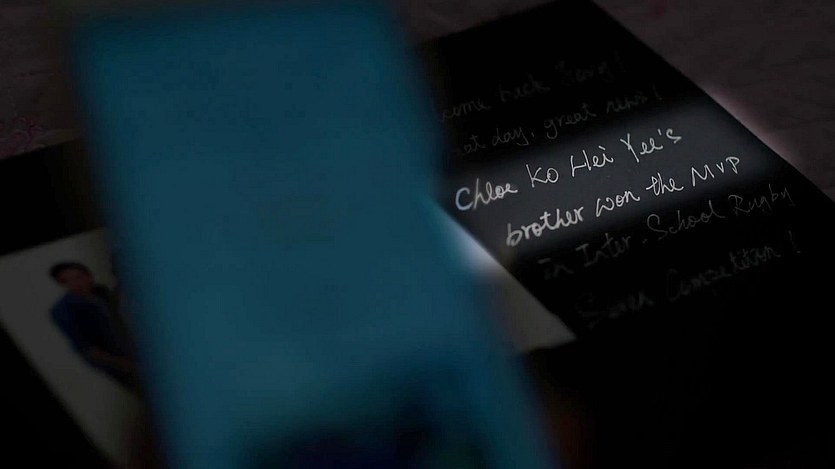 come back Tony!
eat day, great news!
Chloe Ko Hei Yee's
brother won the MVP
in Inter-School Rugby
Seven Competition!